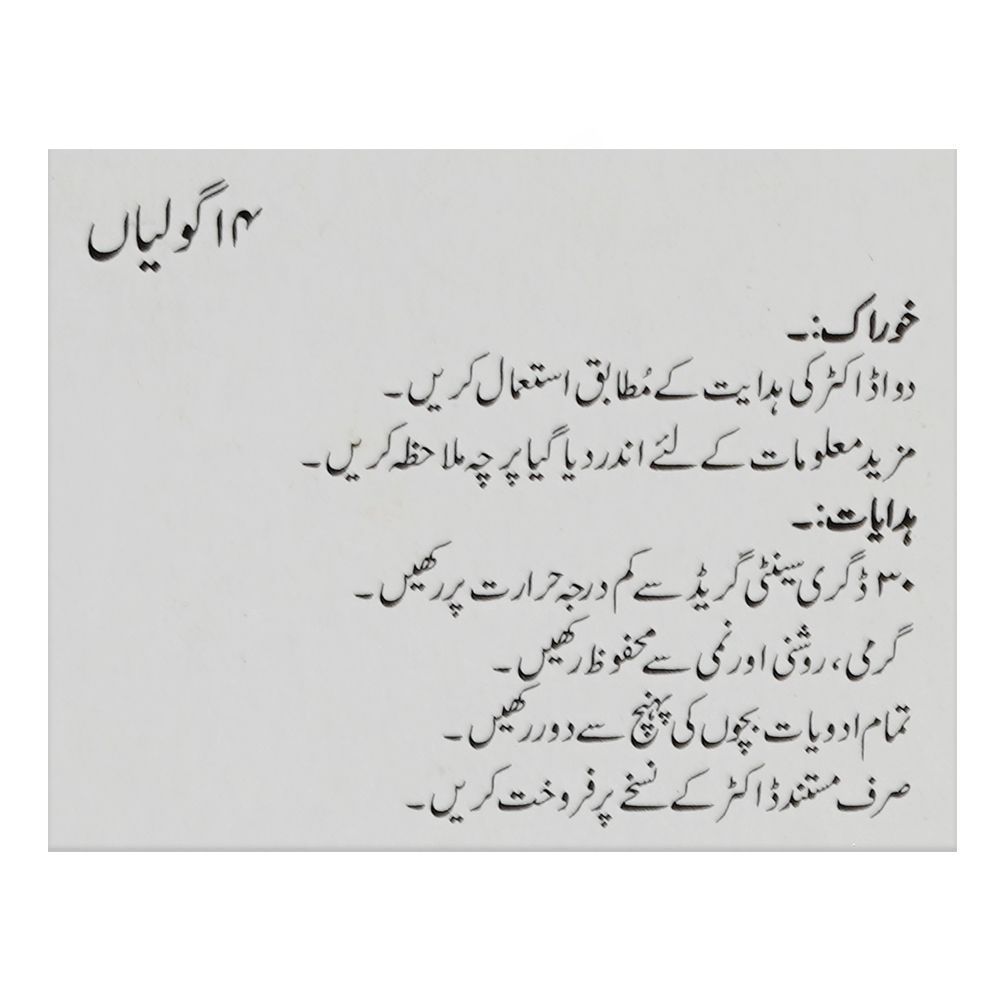 ۱۴ گولیاں
خوراک:۔
دوا ڈاکٹر کی ہدایت کے مُطابق استعمال کریں۔
مزید معلومات کے لئے اندر دیا گیا پرچہ ملاحظہ کریں۔
ہدایات:۔
۳۰ ڈگری سینٹی گریڈ سے کم درجہ حرارت پر رکھیں۔
گرمی، روشنی اور نمی سے محفوظ رکھیں۔
تمام ادویات بچوں کی پہنچ سے دور رکھیں۔
صرف مستند ڈاکٹر کے نسخے پر فروخت کریں۔